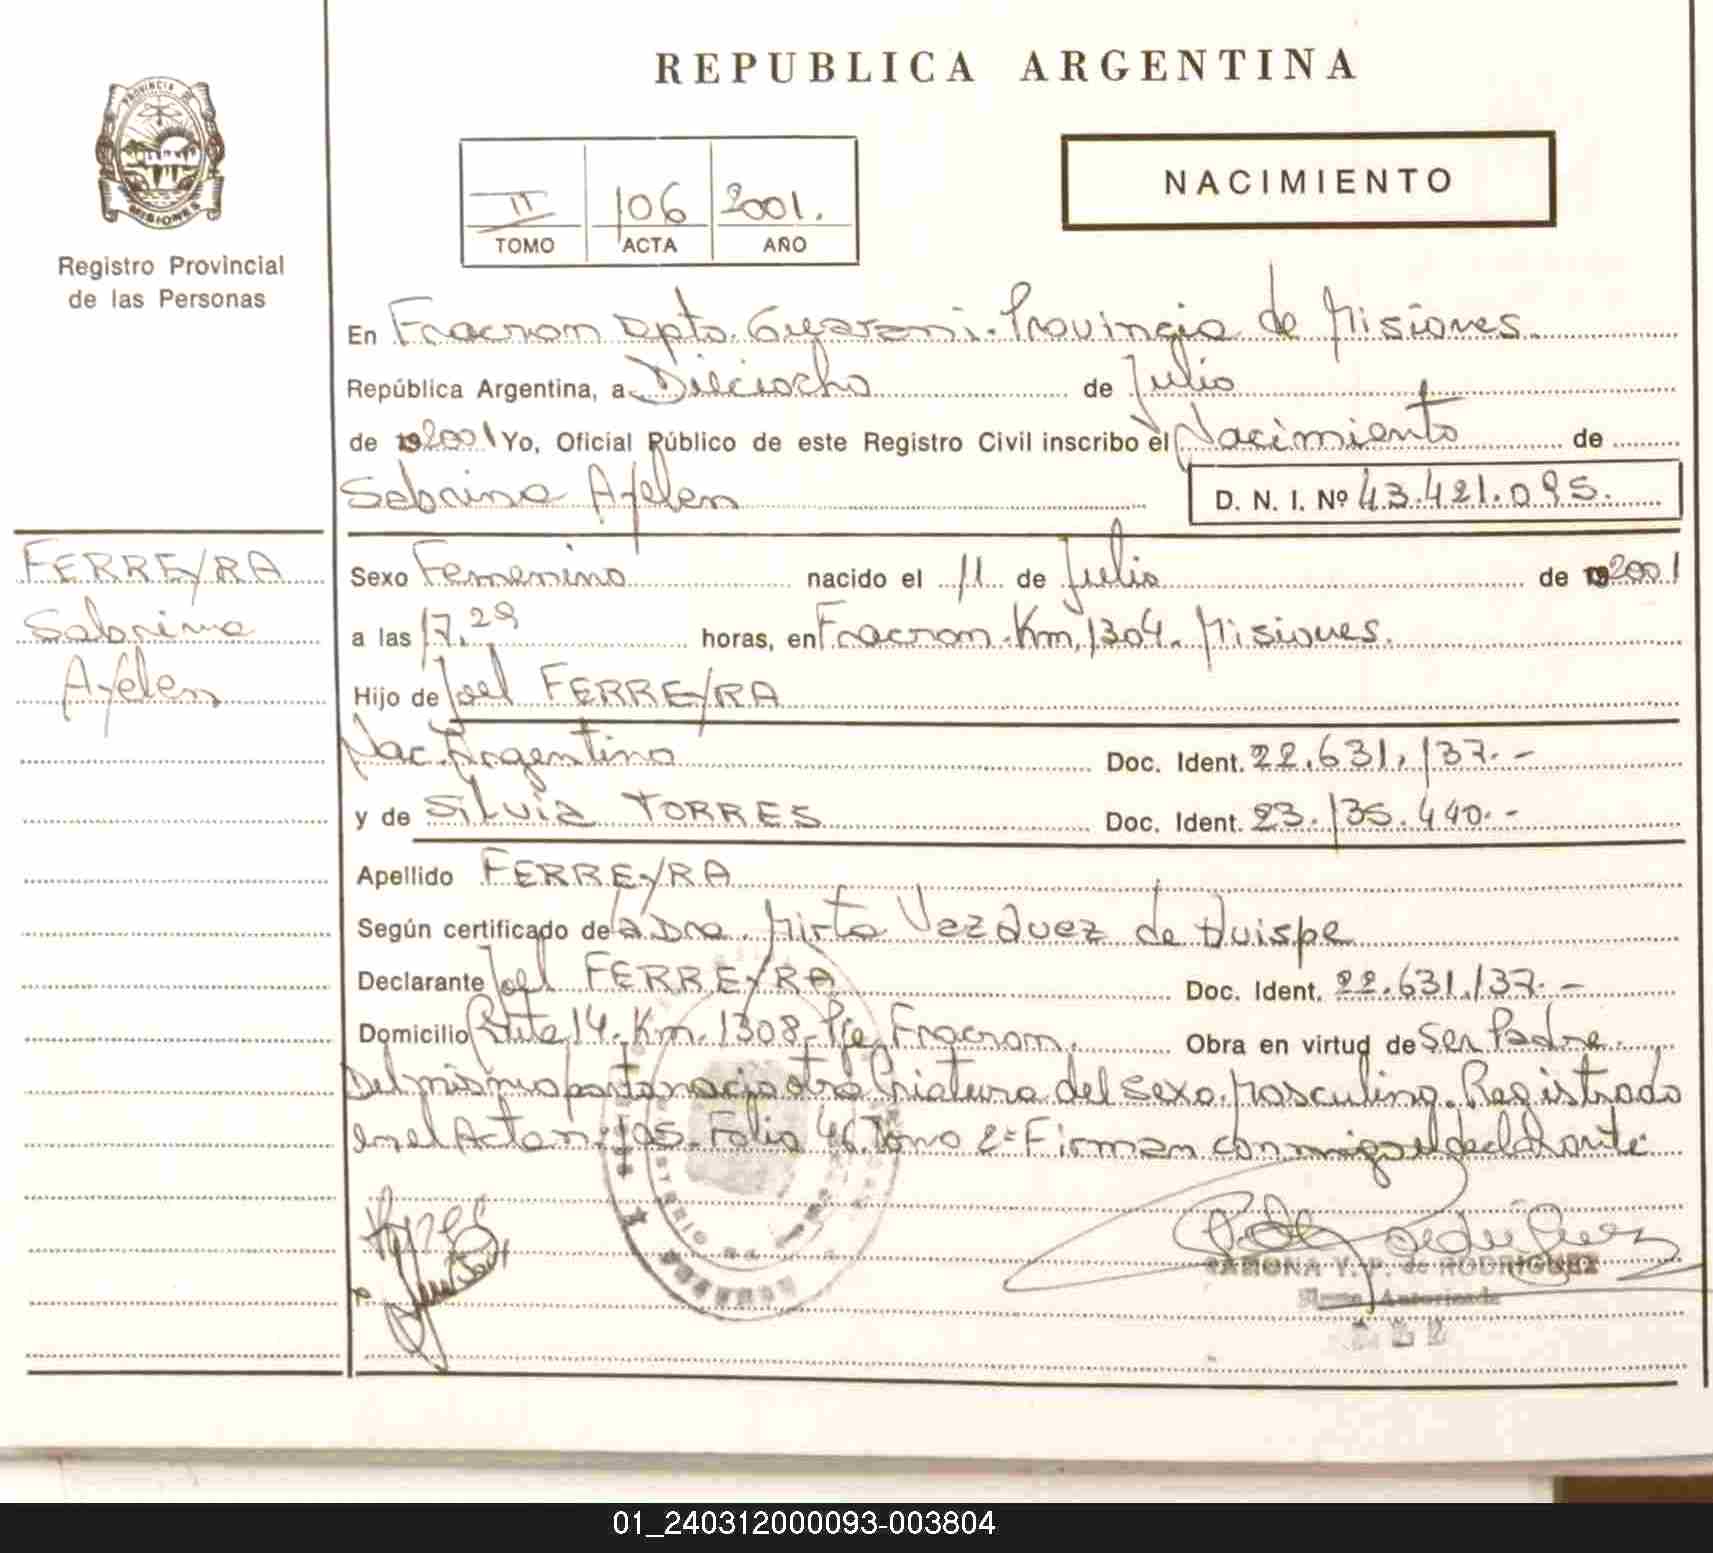 REPUBLICA ARGENTINA
PROVINCIA DE
MISIONES
Registro Provincial
de las Personas
II 106 2001.
TOMO ACTA AÑO
NACIMIENTO
En Fracran Dpto. Guarani. Provincia de Misiones.
República Argentina, a Dieciocho de Julio
de 192001 Yo, Oficial Público de este Registro Civil inscribo el Nacimiento de
Sabrina Ayelen D. N. I. Nº 43.421.095.
FERREYRA
Sabrina
Ayelen
Sexo Femenino nacido el 11 de Julio de 192001
a las 17.29 horas, en Fracran. Km. 1304. Misiones.
Hijo de Joel FERREYRA
Nac. Argentina Doc. Ident. 22.631.137.-
y de Silvia TORRES Doc. Ident. 23.135.440.-
Apellido FERREYRA
Según certificado de la Dra. Mirta Vazquez de Quispe
Declarante Joel FERREYRA Doc. Ident. 22.631.137.-
Domicilio Ruta 14. Km. 1308. Pje Fracran. Obra en virtud de Ser Padre.
Del mismo parto nacio otra Criatura del sexo Masculino. Registrado
en el Acta n: 105. Folio 46. Tomo 2= Firman conmigo el declarante
RAMONA Y. P. de RODRIGUEZ
Firma Autorizada
01_240312000093-003804